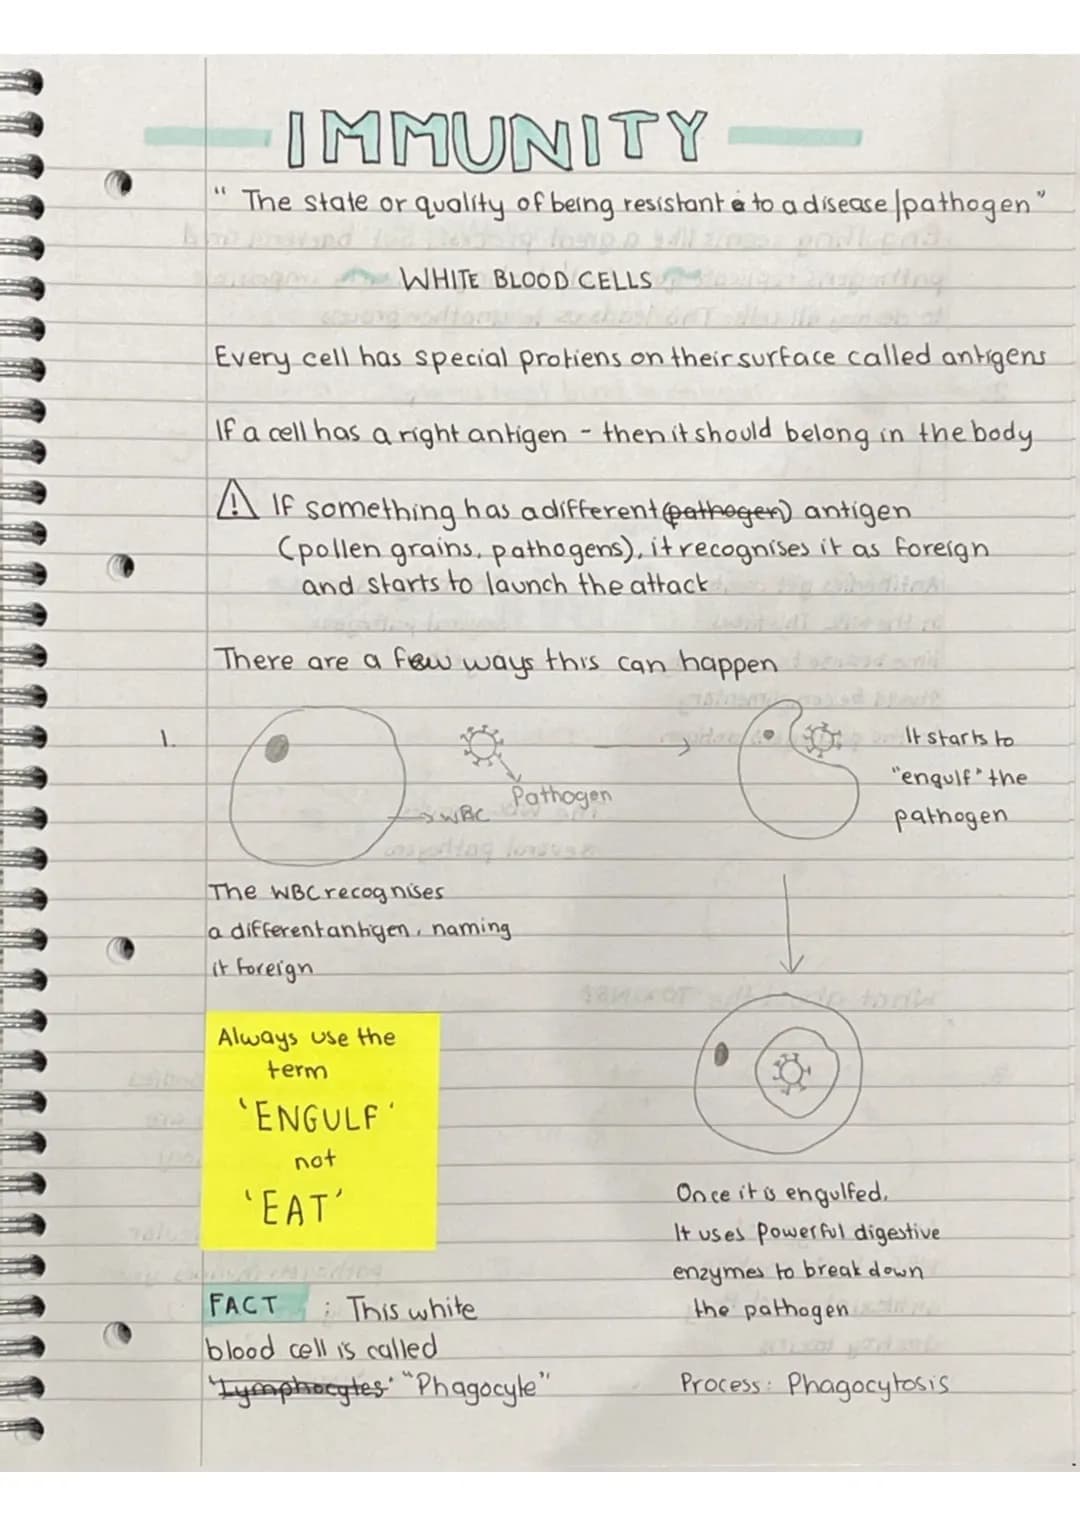 IMMUNITY
" The state or quality of being resistant to a disease/pathogen"
WHITE BLOOD CELLS
Every cell has special protiens on their surface called antigens
If a cell has a right antigen - then it should belong in the body
⚠ If something has a different (pathogen) antigen
(pollen grains, pathogens), it recognises it as foreign
and starts to launch the attack
There are a few ways this can happen
1.
Pathogen
WBC
It starts to
"engulf" the
pathogen
The WBC recognises
a different antigen, naming
it foreign
Always use the
term
'ENGULF'
not
'EAT'
Once it is engulfed,
It uses powerful digestive
enzymes to break down
the pathogen
FACT : This white
blood cell is called
'Lymphocytes' "Phagocyte"
Process: Phagocytosis